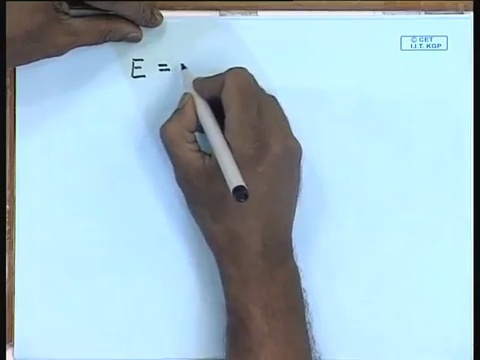 © CET
I.I.T. KGP
E =